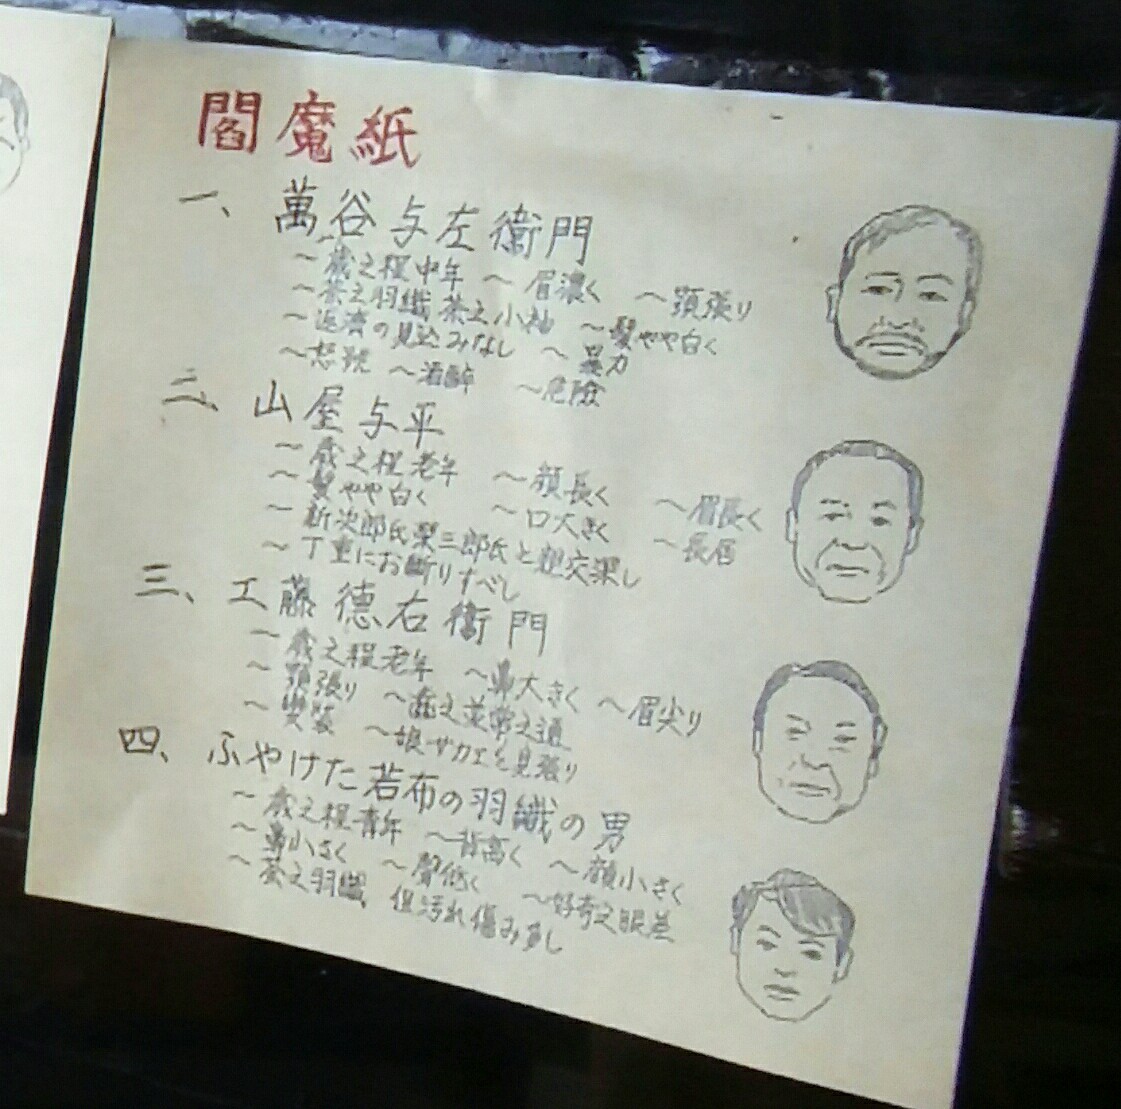 閻魔紙
一、萬谷与左衞門
〜歳之程中年 〜眉濃く 〜顎張り
〜茶之羽織茶之小袖 〜髪やや白く
〜返済の見込みなし 〜暴力
〜怒號 〜酒酔 〜危險
二、山屋与平
〜歳之程老年 〜顔長く 〜眉長く
〜髪やや白く 〜口大きく 〜長居
〜新次郎氏栗三郎氏と親交深し
〜丁重にお断りすべし
三、工藤德右衞門
〜歳之程老年 〜鼻大きく 〜眉尖り
〜顎張り 〜髷之並常之通
〜変装 〜娘サカエを見張り
四、ふやけた若布の羽織の男
〜歳之程青年 〜背高く 〜顔小さく
〜鼻小さく 〜聲低く 〜好奇之眼差
〜茶之羽織 但汚れ傷み多し